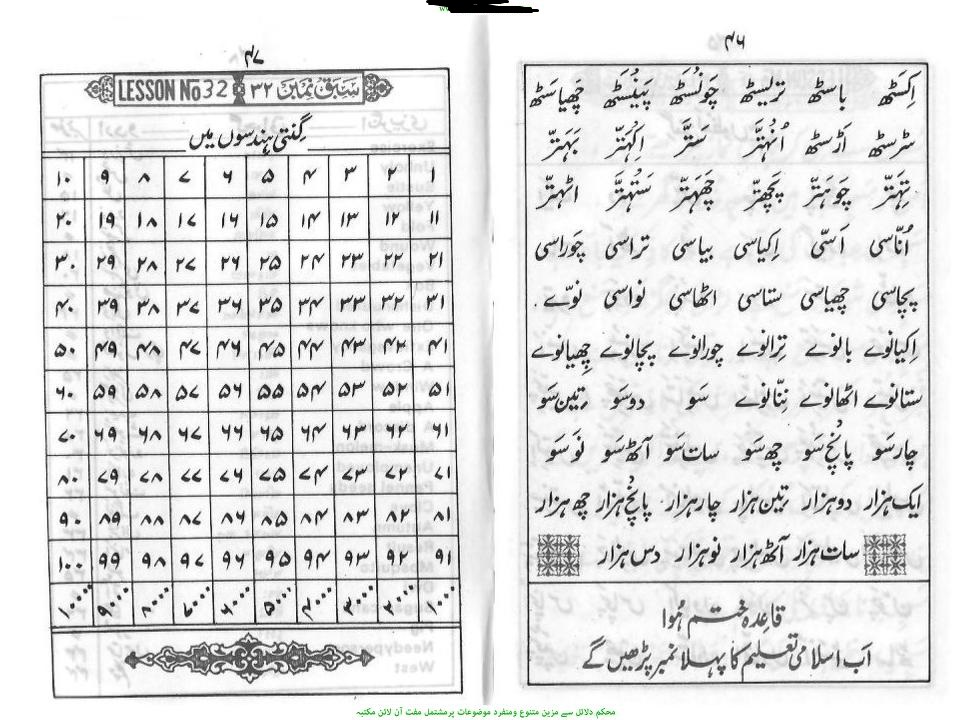 ۴۶
اِکسَٹھ باسٹھ تریسٹھ چَونْسَٹھ پَینْسَٹھ چھیاسَٹھ
سٹرسٹھ اَڑسٹھ اُنہتَّر سَتَّر اِکہَتَّر بَہَتَّر
تِہَتَّر چَوہَتَّر پَچھتَّر چھَہَتَّر سَتہَتَّر اٹھہتَّر
اُنّاسی اَسّی اِکیاسی بیاسی تراسی چوراسی
پچاسی چھیاسی ستاسی اٹھاسی نواسی نوّے ۔
اکیانوے بانوے تِرانوے چورانوے پچانوے چھیانوے
ستانوے اٹھانوے نِنّانوے سَو دوسَو تین سَو
چار سَو پانْچ سَو چھ سَو سات سَو آٹھ سَو نَو سَو
ایک ہزار دو ہزار تین ہزار چار ہزار پانْچ ہزار چھ ہزار
سات ہزار آٹھ ہزار نو ہزار دس ہزار
قاعدہ ختم ہُوا
اَب اسلامی تعلیم کا پہلا نمبر پڑھیں گے
۴۷
LESSON No 32 سَبَق نمبر ۳۲
گِنتی ہندسوں میں
۱ ۲ ۳ ۴ ۵ ۶ ۷ ۸ ۹ ۱۰
۱۱ ۱۲ ۱۳ ۱۴ ۱۵ ۱۶ ۱۷ ۱۸ ۱۹ ۲۰
۲۱ ۲۲ ۲۳ ۲۴ ۲۵ ۲۶ ۲۷ ۲۸ ۲۹ ۳۰
۳۱ ۳۲ ۳۳ ۳۴ ۳۵ ۳۶ ۳۷ ۳۸ ۳۹ ۴۰
۴۱ ۴۲ ۴۳ ۴۴ ۴۵ ۴۶ ۴۷ ۴۸ ۴۹ ۵۰
۵۱ ۵۲ ۵۳ ۵۴ ۵۵ ۵۶ ۵۷ ۵۸ ۵۹ ۶۰
۶۱ ۶۲ ۶۳ ۶۴ ۶۵ ۶۶ ۶۷ ۶۸ ۶۹ ۷۰
۷۱ ۷۲ ۷۳ ۷۴ ۷۵ ۷۶ ۷۷ ۷۸ ۷۹ ۸۰
۸۱ ۸۲ ۸۳ ۸۴ ۸۵ ۸۶ ۸۷ ۸۸ ۸۹ ۹۰
۹۱ ۹۲ ۹۳ ۹۴ ۹۵ ۹۶ ۹۷ ۹۸ ۹۹ ۱۰۰
۱۰۰۰ ۲۰۰۰ ۳۰۰۰ ۴۰۰۰ ۵۰۰۰ ۶۰۰۰ ۷۰۰۰ ۸۰۰۰ ۹۰۰۰ ۱۰۰۰۰
محکم دلائل سے مزین متنوع ومنفرد موضوعات پر مشتمل مفت آن لائن مکتبہ